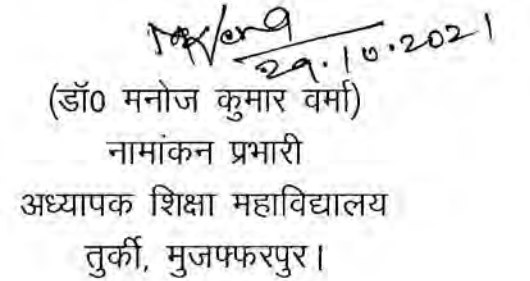 29.10.2021
(डॉ0 मनोज कुमार वर्मा)
नामांकन प्रभारी
अध्यापक शिक्षा महाविद्यालय
तुर्की, मुजफ्फरपुर।